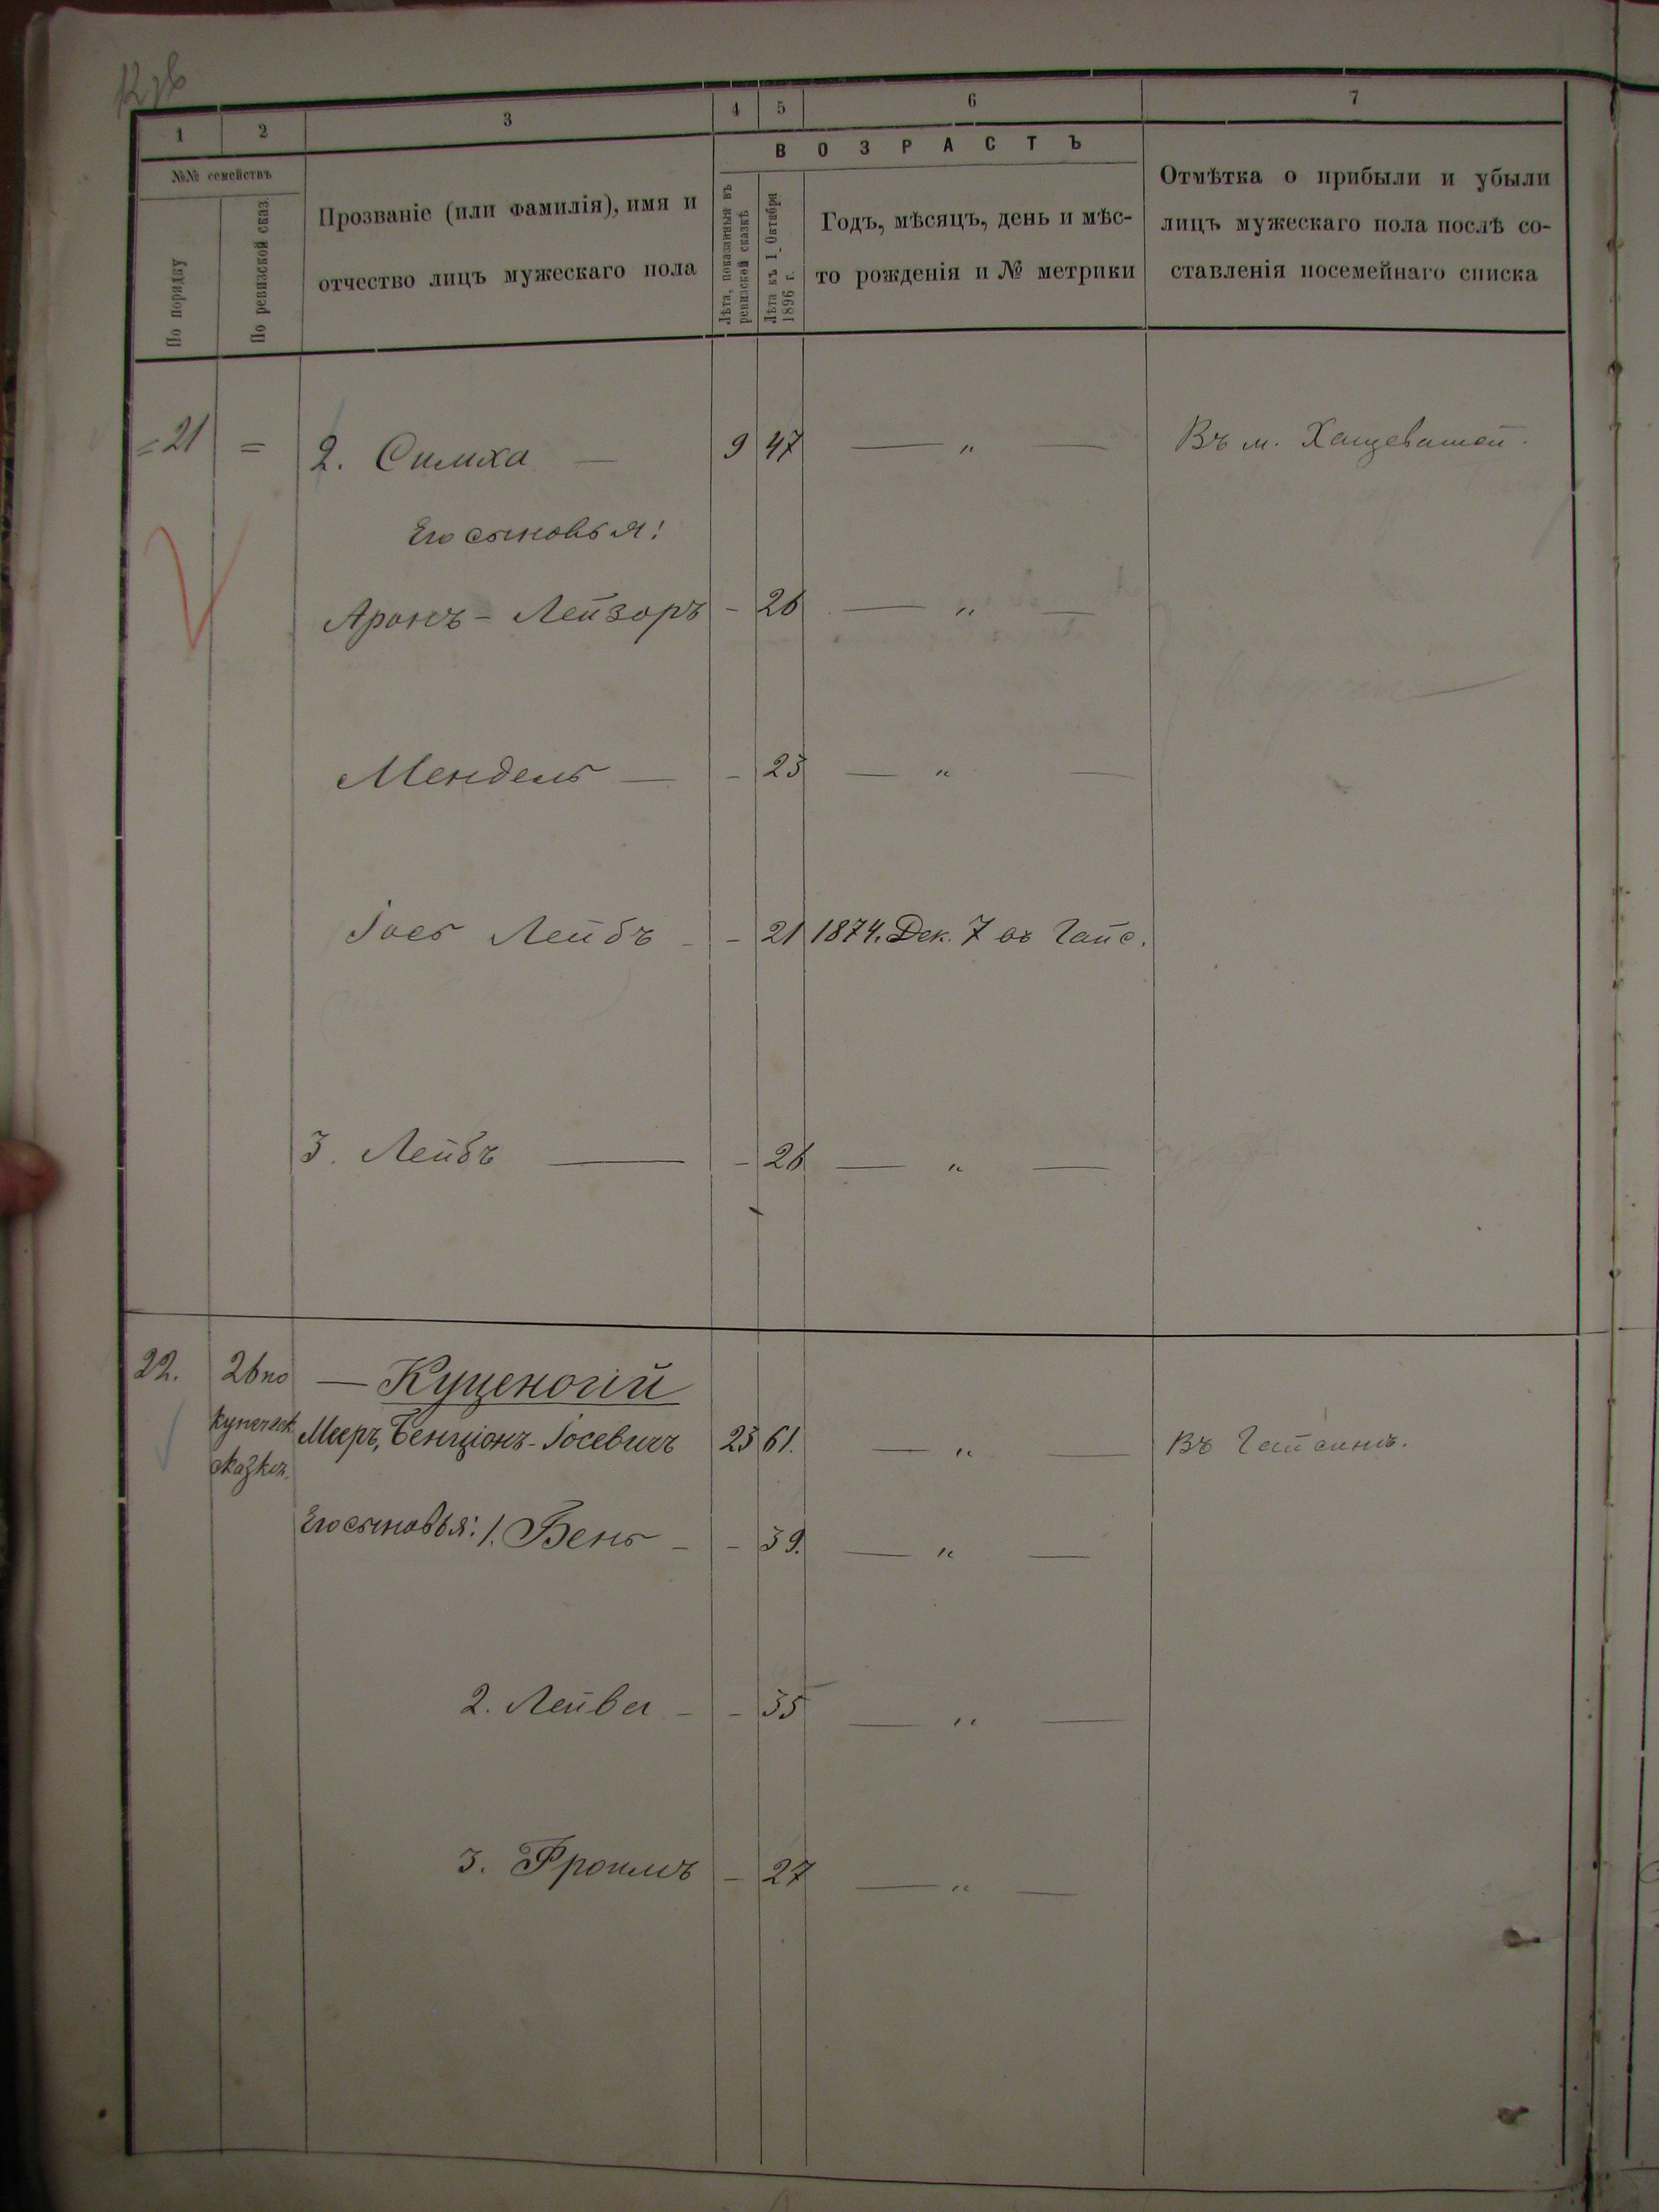 1 2 3 4 5 6 7
№№ семействъ
По порядку
По ревизской сказ.
Прозваніе (или фамилія), имя и
отчество лицъ мужескаго пола
ВОЗРАСТЪ
Лѣта, показанныя въ
ревизской сказкѣ
Лѣта къ 1 Октября
1896 г.
Годъ, мѣсяцъ, день и мѣс-
то рожденія и № метрики
Отмѣтка о прибыли и убыли
лицъ мужескаго пола послѣ со-
ставленія посемейнаго списка
=21 = 2. Симха — 9 47 — „ — Въ м. Хащеватой.
Его сыновья:
Аронъ-Лейзоръ - 26 — „ —
Мендель — - 23 — „ —
Іось Лейбъ - - 21 1874. Дек. 7 въ Гайс.
3. Лейбъ — - 26 — „ —
22. 26 по — Куценогій
купеческ. Мееръ, Бенціонъ-Іосевичъ 23 61. — „ — Въ Гайсинѣ.
сказкѣ.
Его сыновья: 1. Бень - - 39. — „ —
2. Лейва - - 35 — „ —
3. Фроимъ - 27 — „ —